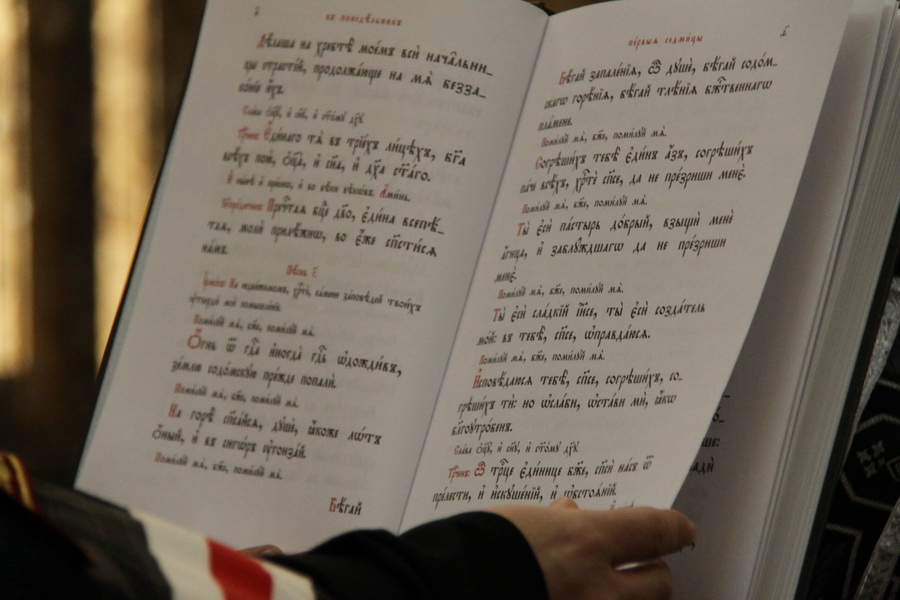 въ понедѣльникъ
Дѣлаша на хребтѣ̀ мое́мъ вси̑ нача̑льни_
цы страсте́й, продолжа́юще на мѧ̀ безза_
ко́нїе и҆́хъ.
Сла́ва ѻ҆ц҃ꙋ̀, и҆ сн҃ꙋ, и҆ ст҃о́мꙋ дх҃ꙋ.
Трⷪ҇ченъ: Е҆ди́наго тѧ̀ въ трїе́хъ ли́цѣхъ, бг҃а
всѣ́хъ пою̀, ѻ҆ц҃а̀, и҆ сн҃а, и҆ дх҃а ст҃а́го.
И҆ ны́нѣ и҆ при́снѡ, и҆ во вѣ́ки вѣкѡ́въ. А҆ми́нь.
Бг҃оро́диченъ: Пречⷭ҇таѧ бцⷣе дв҃о, є҆ди́на всепѣ́_
таѧ, молѝ прилѣ́жнѡ, во є҆́же сп҃сти́сѧ
на́мъ.
Пѣ́снь г҃.
І҆рмо́съ: На недви́жимомъ, хрⷭ҇тѐ, ка́мени за́повѣдей твои́хъ
ᲂу҆твердѝ моѐ помышле́нїе.
Поми́лꙋй мѧ̀, бж҃е, поми́лꙋй мѧ̀.
Ѻ҆́гнь ѿ гдⷭ҇а и҆ногда̀ гдⷭ҇ь ѡ҆дожди́въ,
зе́млю содо́мскꙋю пре́жде попалѝ.
Поми́лꙋй мѧ̀, бж҃е, поми́лꙋй мѧ̀.
На горѣ̀ спаса́йсѧ, дꙋшѐ, ꙗ҆́коже лѡ́тъ
ѻ҆́ный, и҆ въ сигѡ́ръ ᲂу҆гонза́й.
Поми́лꙋй мѧ̀, бж҃е, поми́лꙋй мѧ̀.
Бѣ́гай
пе́рвыѧ седми́цы
Бѣ́гай запале́нїѧ, ѽ дꙋшѐ, бѣ́гай содо́м_
скагѡ горѣ́нїѧ, бѣ́гай тлѣ́нїѧ бж҃е́ственнагѡ
пла́мене.
Поми́лꙋй мѧ̀, бж҃е, поми́лꙋй мѧ̀.
Согрѣши́хъ тебѣ̀ є҆ди́нъ а҆́зъ, согрѣши́хъ
па́че всѣ́хъ, хрⷭ҇тѐ сп҃се, да не пре́зриши менѐ.
Поми́лꙋй мѧ̀, бж҃е, поми́лꙋй мѧ̀.
Ты̀ є҆сѝ па́стырь до́брый, взыщѝ менѐ
а҆́гнца, и҆ заблꙋ́ждшаго да не пре́зриши
менѐ.
Поми́лꙋй мѧ̀, бж҃е, поми́лꙋй мѧ̀.
Ты̀ є҆сѝ сла́дкїй і҆и҃се, ты̀ є҆сѝ созда́телю
мо́й: въ тебѣ̀, сп҃се, ѡ҆правда́юсѧ.
Поми́лꙋй мѧ̀, бж҃е, поми́лꙋй мѧ̀.
И҆сповѣ́даюсѧ тебѣ̀, сп҃се, согрѣши́хъ, со_
грѣши́хъ тѝ: но ѡ҆сла́би, ѡ҆ста́ви мѝ, ꙗ҆́кѡ
бл҃гоꙋтро́бенъ.
Сла́ва ѻ҆ц҃ꙋ̀, и҆ сн҃ꙋ, и҆ ст҃о́мꙋ дх҃ꙋ.
Трⷪ҇ченъ: Ѽ трⷪ҇це є҆ди́нице бж҃е, сп҃сѝ на́съ ѿ
пре́лести, и҆ и҆скꙋше́нїй, и҆ ѡ҆бстоѧ́нїй.